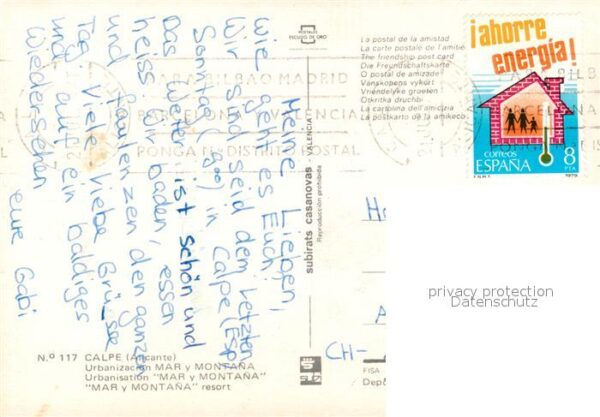 Meine Lieben,
wie geht es Euch?
Wir sind seid dem letzten
Sonntag in Calpe (Esp)
Das Wetter ist schön und
heiss. Wir baden, essen
und faulenzen den ganzen
Tag. Viele liebe Grüsse
und auf ein baldiges
Wiedersehen
eure Gabi
CH-
POSTALES
ESCUDO DE ORO
La postal de la amistad
La carte postale de l'amitié
The friendship post card
Die Freundschaftskarte
O postal de amizade
Vanskapens vykort
Vriendelijke groeten
Otkritka druchbi
La cartolina dell'amicizia
La postkarto de la amikeco
subirats casanovas - VALENCIA
Reproducción prohibida
¡ahorre
energía!
correos
ESPAÑA
8
PTA
F.N.M.T.
1979
BILBAO MADRID
BARCELONA VALENCIA
PONGA Nº DISTRITO POSTAL
BARCELONA
privacy protection
Datenschutz
N.º 117 CALPE (Alicante)
Urbanización MAR y MONTAÑA
Urbanisation "MAR y MONTAÑA"
"MAR y MONTAÑA" resort
FISA
Dep